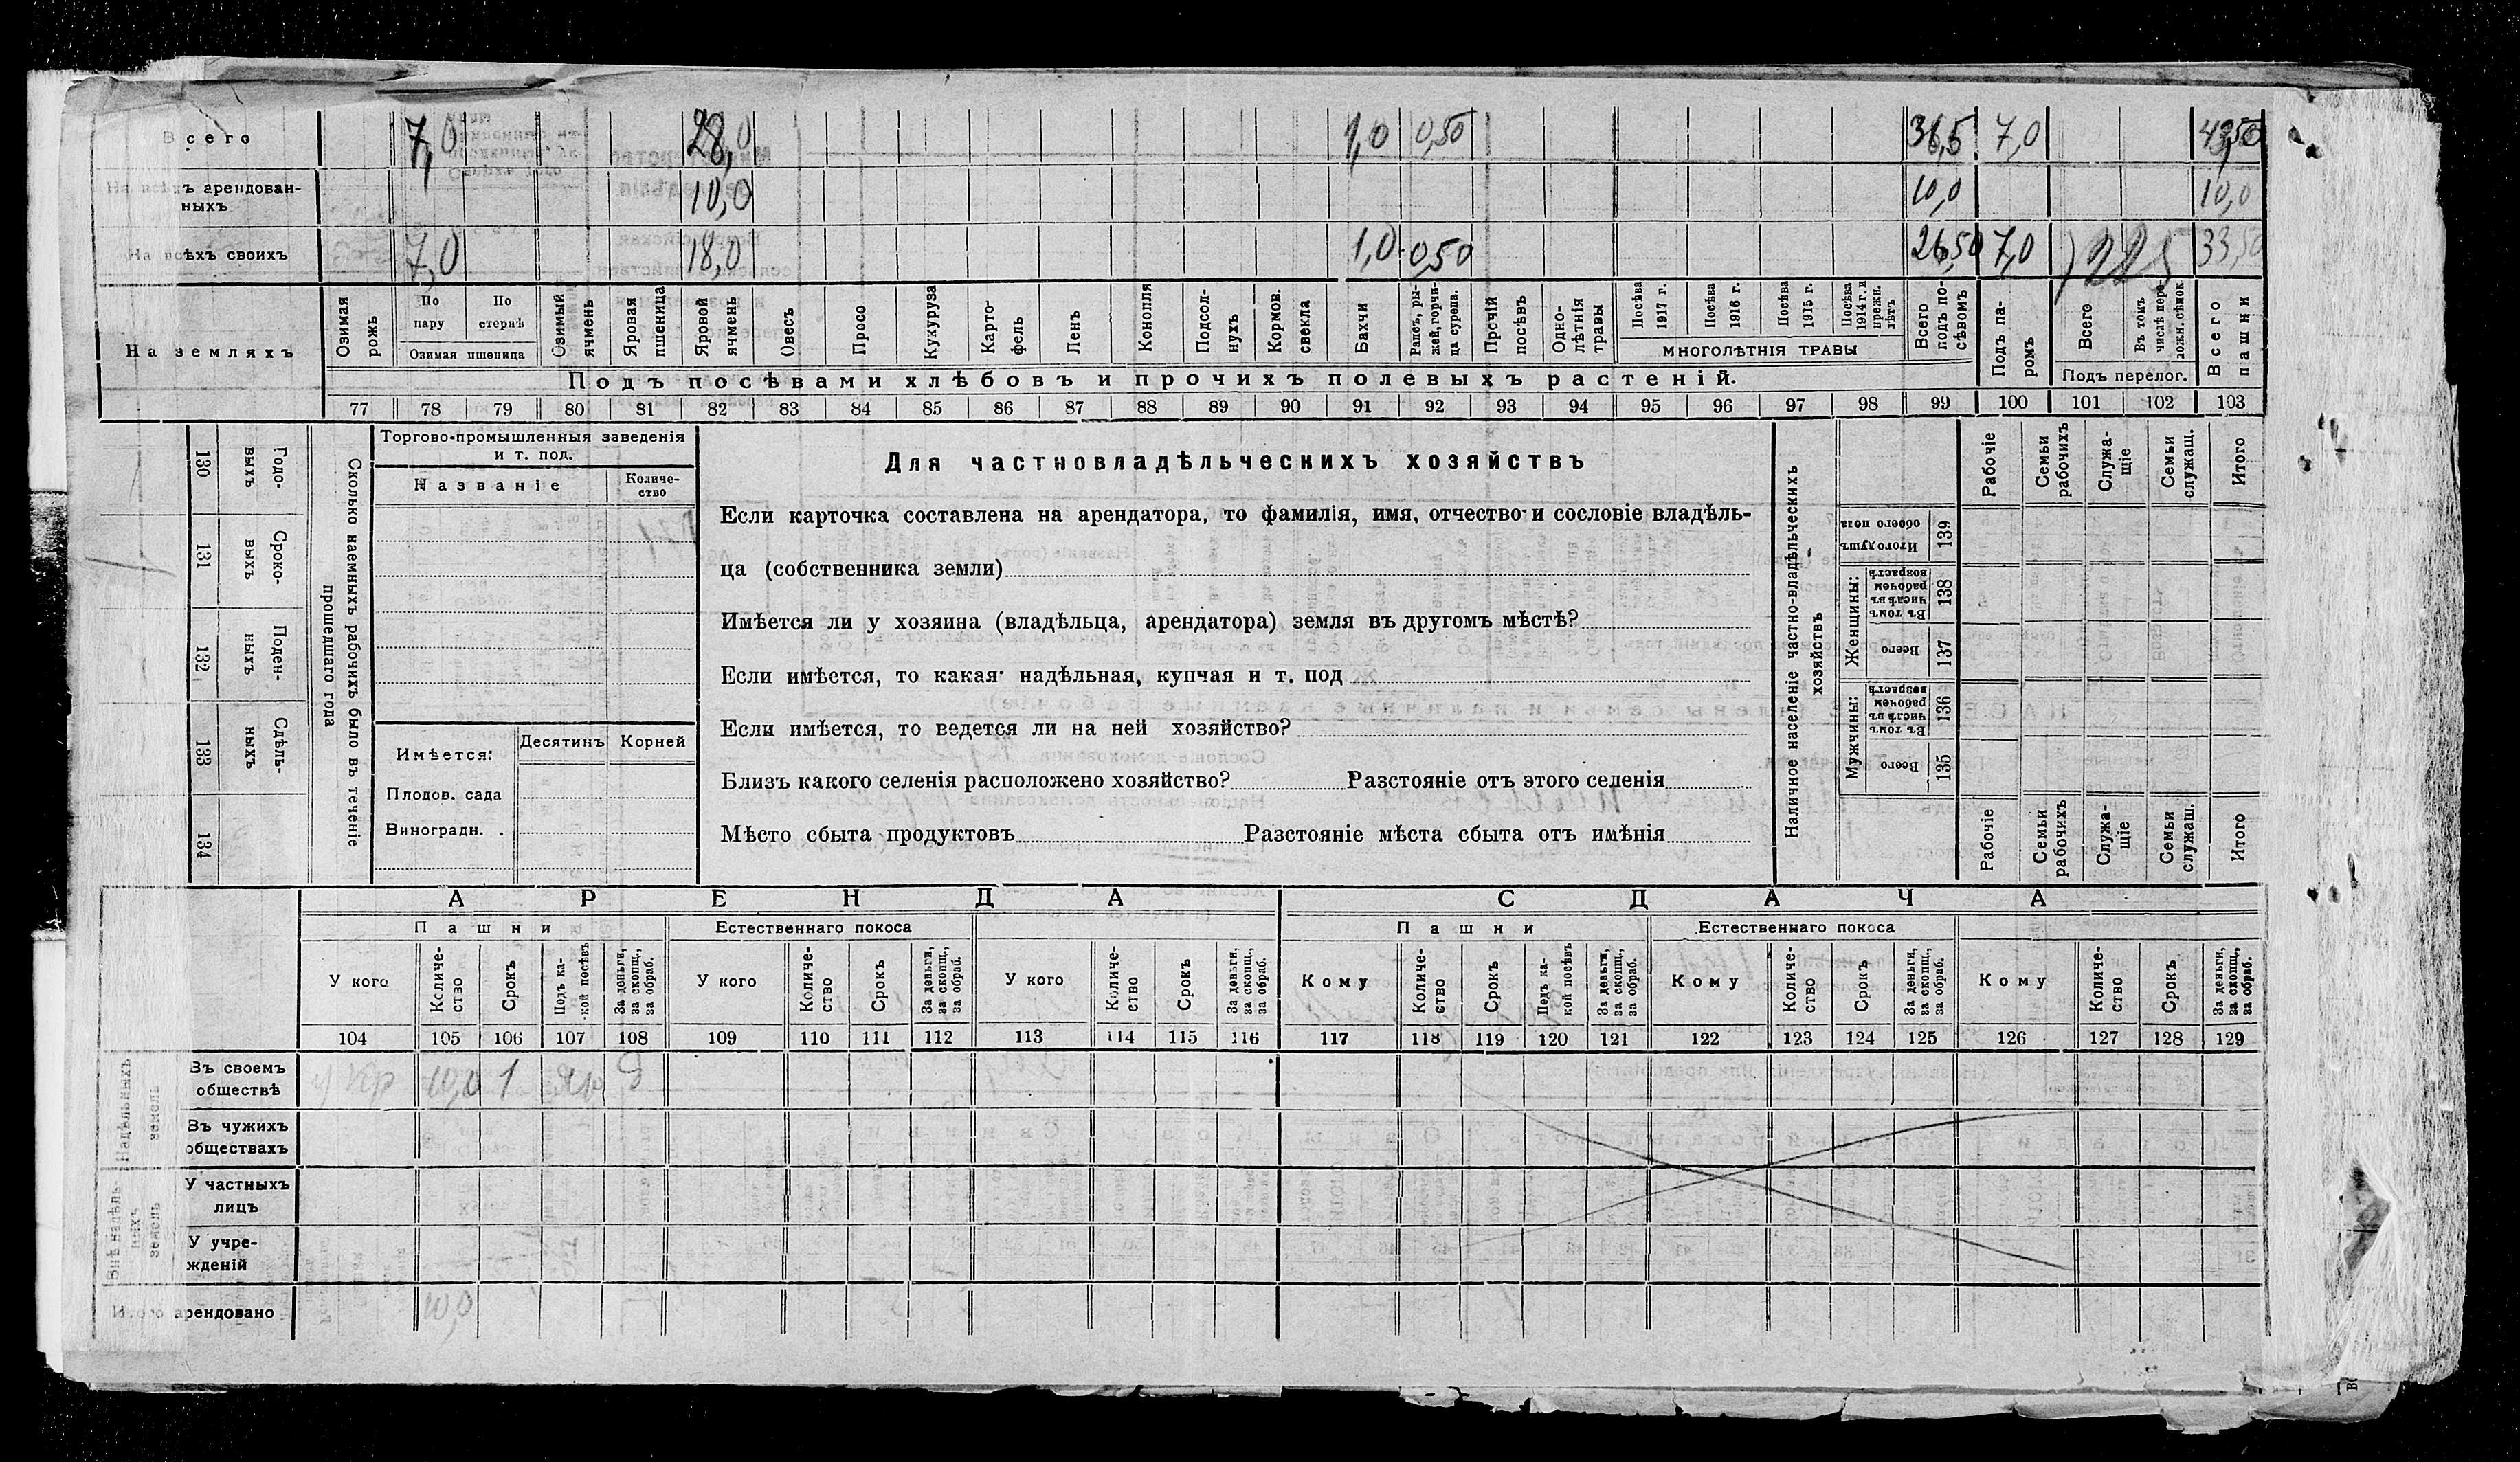 Всего 7,0 28,0 1,0 0,50 36,5 7,0 43,50
На всѣхъ арендован-
ныхъ 10,0 10,0 10,0
На всѣхъ своихъ 7,0 18,0 1,0 0,50 26,50 7,0 33,50
На земляхъ
Озимая рожь
По пару
По стернѣ
Озимая пшеница
Озимый ячмень
Яровая пшеница
Яровой ячмень
Овесъ
Просо
Кукуруза
Карто-
фель
Ленъ
Конопля
Подсол-
нухъ
Кормов. свекла
Бахчи
Рапсъ, ры-
жей, горчи-
ца сурепа.
Прочій посѣвъ
Одно-
лѣтнія травы
Посѣва 1917 г.
Посѣва 1916 г.
Посѣва 1915 г.
Посѣва 1914 г. и прежн. лѣтъ
МНОГОЛѢТНІЯ ТРАВЫ
Всего подъ по-
сѣвомъ
Подъ па-
ромъ
Всего
Въ томъ числѣ пере-
ложн. сѣнок.
Подъ перелог.
Всего пашни
Подъ посѣвами хлѣбовъ и прочихъ полевыхъ растеній.
77 78 79 80 81 82 83 84 85 86 87 88 89 90 91 92 93 94 95 96 97 98 99 100 101 102 103
130 Годо-
выхъ
131 Сроко-
выхъ
132 Поден-
ныхъ
133 Сдѣль-
ныхъ
134
Сколько наемныхъ рабочихъ было въ теченіе
прошедшаго года
Торгово-промышленныя заведенія
и т. под.
Названіе
Количе-
ство
Имѣется: Десятинъ Корней
Плодов. сада
Виноградн. .
Для частновладѣльческихъ хозяйствъ
Если карточка составлена на арендатора, то фамилія, имя, отчество и сословіе владѣль-
ца (собственника земли)
Имѣется ли у хозяина (владѣльца, арендатора) земля въ другомъ мѣстѣ?
Если имѣется, то какая надѣльная, купчая и т. под
Если имѣется, то ведется ли на ней хозяйство?
Близъ какого селенія расположено хозяйство? Разстояніе отъ этого селенія
Мѣсто сбыта продуктовъ Разстояніе мѣста сбыта отъ имѣнія
Наличное населеніе частно-владѣльческихъ
хозяйствъ
Рабочіе
Семьи рабочихъ
Служа-
щіе
Семьи служащ.
Итого
Итого душъ обоего пола 139
Женщины:
Въ томъ числѣ въ рабочемъ возрастѣ 138
Всего 137
Мужчины:
Въ томъ числѣ въ рабочемъ возрастѣ 136
Всего 135
Рабочіе
Семьи рабочихъ
Служа-
щіе
Семьи служащ.
Итого
АРЕНДА СДАЧА
Пашни Естественнаго покоса Пашни Естественнаго покоса
У кого
Количе-
ство
Срокъ
Подъ ка-
кой посѣвъ
За деньги, за скопщ., за обраб.
У кого
Количе-
ство
Срокъ
За деньги, за скопщ., за обраб.
У кого
Количе-
ство
Срокъ
За деньги, за скопщ., за обраб.
Кому
Количе-
ство
Срокъ
Подъ ка-
кой посѣвъ
За деньги, за скопщ., за обраб.
Кому
Количе-
ство
Срокъ
За деньги, за скопщ., за обраб.
Кому
Количе-
ство
Срокъ
За деньги, за скопщ., за обраб.
104 105 106 107 108 109 110 111 112 113 114 115 116 117 118 119 120 121 122 123 124 125 126 127 128 129
Надѣльныхъ земель
Въ своемъ
обществѣ 10,0 1
Въ чужихъ
обществахъ
Внѣ надѣль-
ныхъ земель
У частныхъ
лицъ
У учре-
жденій
Итого арендовано 10,0